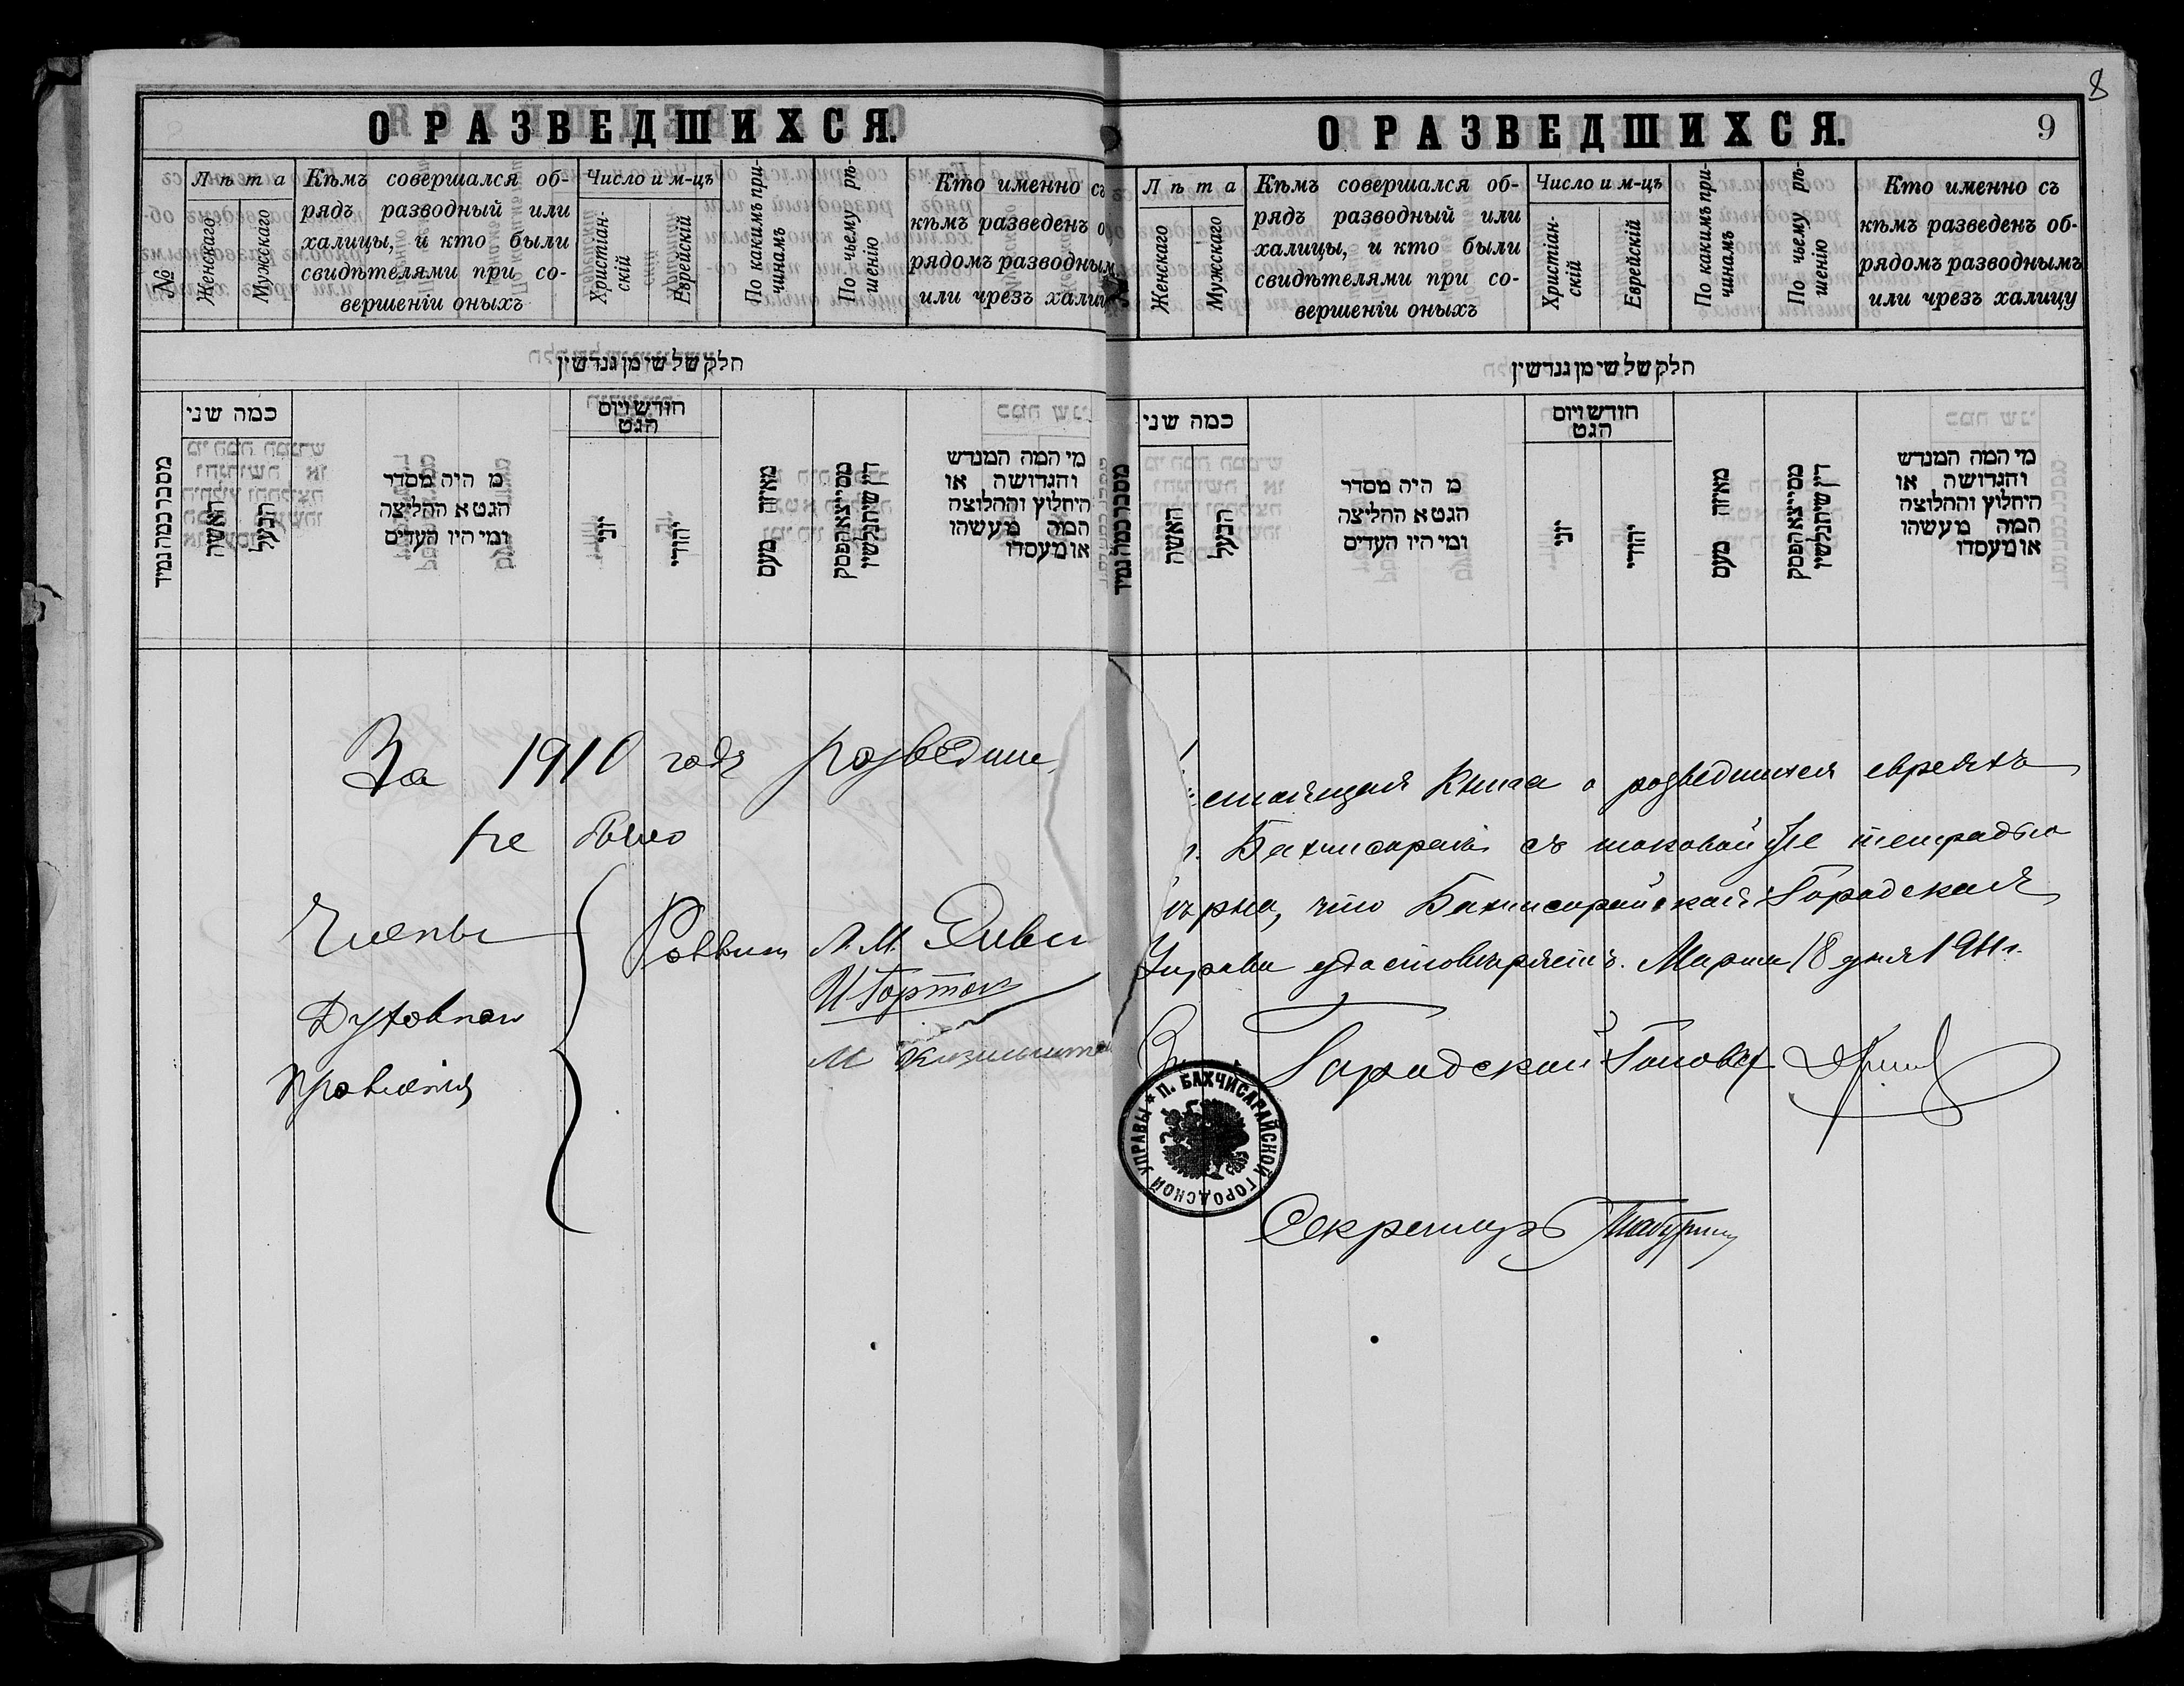 О РАЗВЕДШИХСЯ.
№
Лѣта
Женскаго
Мужескаго
Кѣмъ совершался об-
рядъ разводный или
халицы, и кто были
свидѣтелями при со-
вершеніи оныхъ
Число и м-цъ
Христіан-
скій
Еврейскій
По какимъ при-
чинамъ
По чьему рѣ-
шенію
Кто именно съ
кѣмъ разведенъ о
рядомъ разводным
или чрезъ халиц
חלק שלשי מן גנרשין
כמה שני
האשה
הבעל
מ היה מסדר
הגט א ההליצה
ומי היו העדים
חודש ויום
הגט
יוני
יהודי
מאיזה טעם
ממי יצא הפסק
דין שיתגלשין
מי המה המגרש
והגרושה או
היחלוץ וההלוצה
המה מעשהו
או מעסדו
За 1910 годъ разведши
не было
Члены
Духовнаго
Правленія
Раввинъ Л. М.
И Гортон
М
8
О РАЗВЕДШИХСЯ.
9
Лѣта
Женскаго
Мужскаго
Кѣмъ совершался об-
рядъ разводный или
халицы, и кто были
свидѣтелями при со-
вершеніи оныхъ
Число и м-цъ
Христіан-
скій
Еврейскій
По какимъ при-
чинамъ
По чьему рѣ-
шенію
Кто именно съ
кѣмъ разведенъ об-
рядомъ разводнымъ
или чрезъ халицу
חלק שלשי מן גנרשין
כמה שני
האשה
הבעל
מ היה מסדר
הגט א ההליצה
ומי היו העדים
חודש ויום
הגט
יוני
יהודי
מאיזה טעם
ממי יצא הפסק
דין שיתגלשין
מי המה המגרש
והגרושה או
היחלוץ וההלוצה
המה מעשהו
או מעסדו
стоящая Книга о разведшихся евреяхъ
г. Бахчисарая съ таковой же тетрадью
вѣрна, что Бахчисарайская Городская
Управа удостовѣряетъ. Марта 18 дня 1911 г.
Городской Голова
П. БАХЧИСАРАЙСКОЙ ГОРОДСКОЙ УПРАВЫ
Секретарь